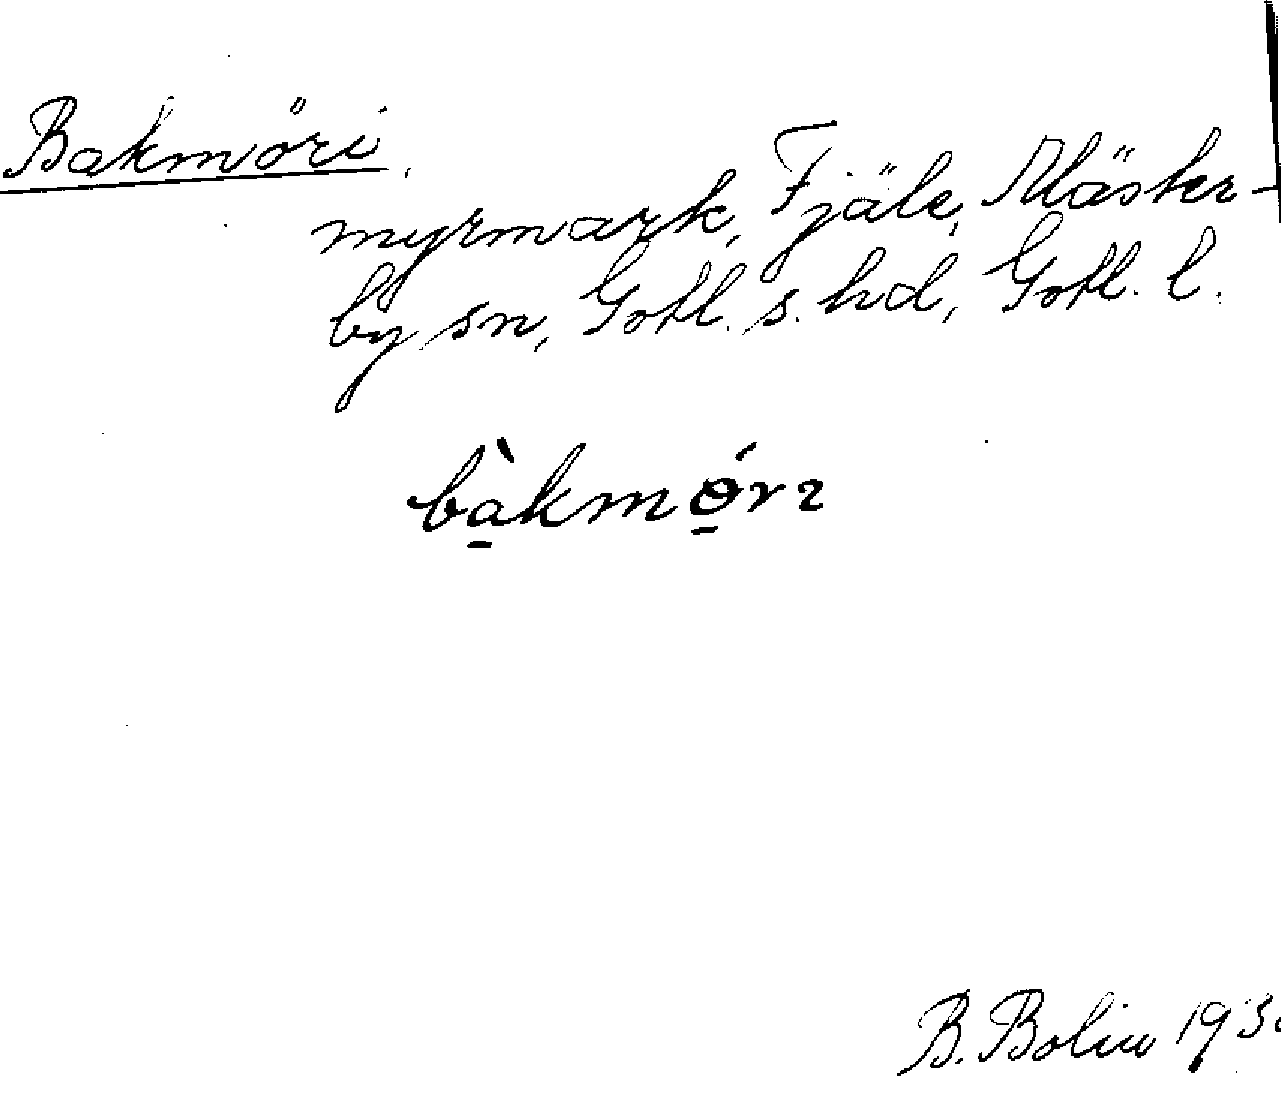 Bakmöri.
myrmark, Fjäle, Mäster-
by sn, Gotl. s. hd, Gotl. l.
bàkmǿrı
B. Bolin